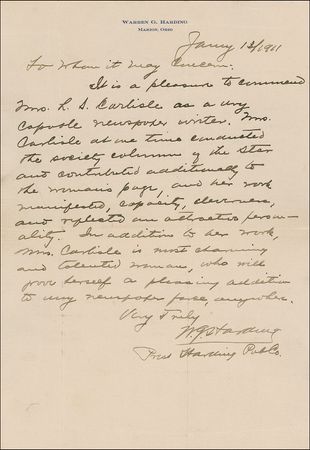 WARREN G. HARDING
MARION, OHIO
Jany 12/1911
To Whom it may Concern:
It is a pleasure to commend
Mrs. L. S. Carlisle as a very
capable newspaper writer. Mrs.
Carlisle at one time conducted
the society columns of the Star
and contributed additionally to
the womans page, and her work
manifested, capacity, cleverness,
and reflected an attractive person-
ality. In addition to her work,
Mrs. Carlisle is most charming
and talented woman, who will
prove herself a pleasing addition
to any newspaper force, anywhere.
Very Truly
W G Harding
Pres Harding Pub Co.